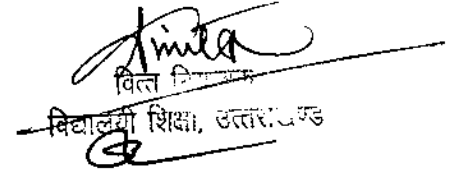 Amita
वित्त नियंत्रक
विद्यालयी शिक्षा, उत्तराखण्ड